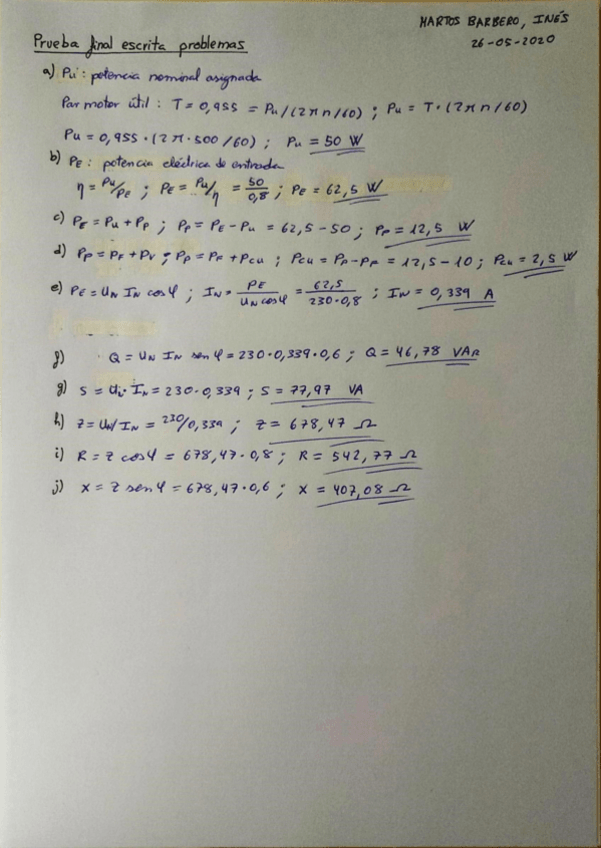 MARTOS BARBERO, INÉS
26-05-2020
Prueba final escrita problemas
a) Pu : potencia nominal asignada
Par motor útil : T = 0,955 = Pu/(2πn/60) ; Pu = T·(2πn/60)
Pu = 0,955·(2π·500/60) ; Pu = 50 W
b) PE : potencia eléctrica de entrada
η = Pu/PE ; PE = Pu/η = 50/0,8 ; PE = 62,5 W
c) PE = Pu + PP ; PP = PE - Pu = 62,5 - 50 ; PP = 12,5 W
d) PP = PF + PV ; PP = PF + PCu ; PCu = PP - PF = 12,5 - 10 ; PCu = 2,5 W
e) PE = UN IN cosφ ; IN = PE/UN cosφ = 62,5/230·0,8 ; IN = 0,339 A
f) Q = UN IN senφ = 230·0,339·0,6 ; Q = 46,78 VAR
g) S = UN·IN = 230·0,339 ; S = 77,97 VA
h) Z = UN/IN = 230/0,339 ; Z = 678,47 Ω
i) R = Z cosφ = 678,47·0,8 ; R = 542,77 Ω
j) X = Z senφ = 678,47·0,6 ; X = 407,08 Ω